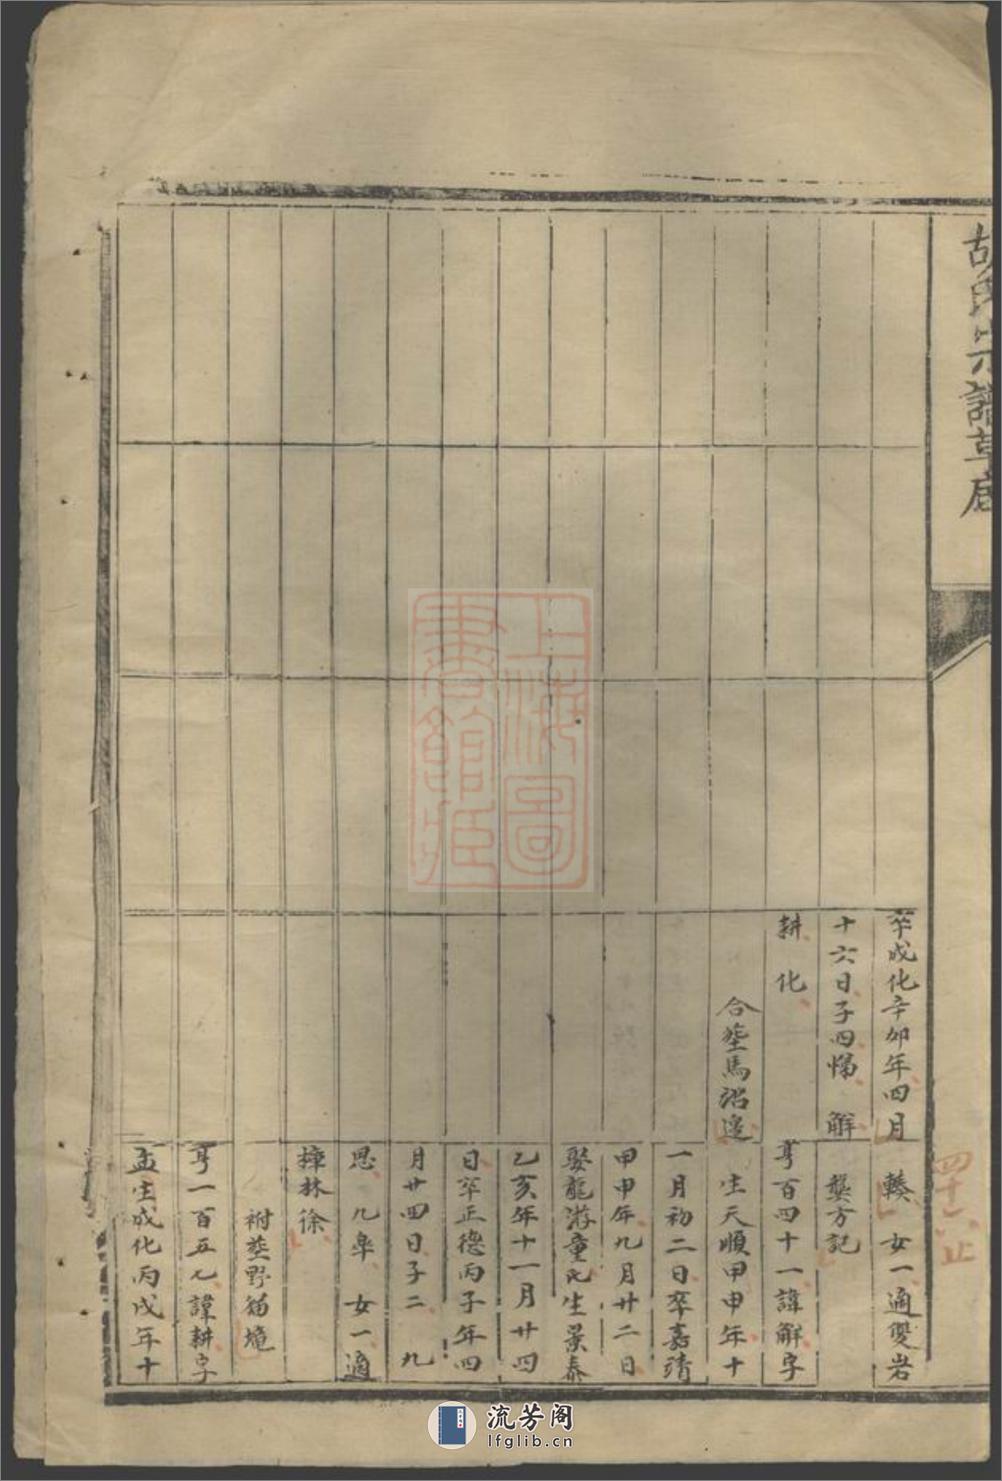 胡氏宗譜草底
四十六止
卒成化辛卯年四月
十六日子四悌 解
耕 化
合塟馬沿邊
轃 女一適雙岩
龔方記
亨百四十一諱解字
生天順甲申年十
一月初二日卒嘉靖
甲申年九月廿二日
娶龍游童氏生景泰
乙亥年十一月廿四
日卒正德丙子年四
月廿四日子二 九
思 九皋 女一適
樟林徐
祔塟野貓塢
亨一百五九諱耕字
孟生成化丙戌年十
上海圖書館藏
流芳阁
lfglib.cn